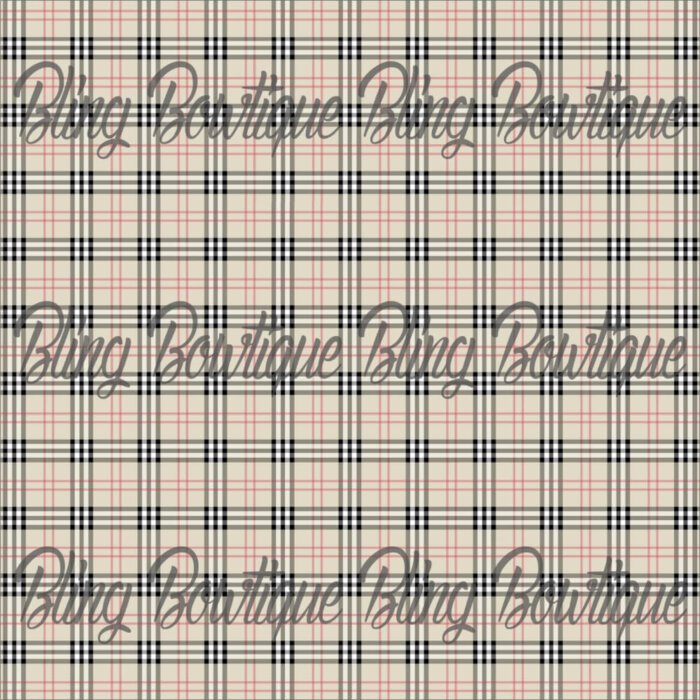 Bling Bowtique Bling Bowtique
Bling Bowtique Bling Bowtique
Bling Bowtique Bling Bowtique